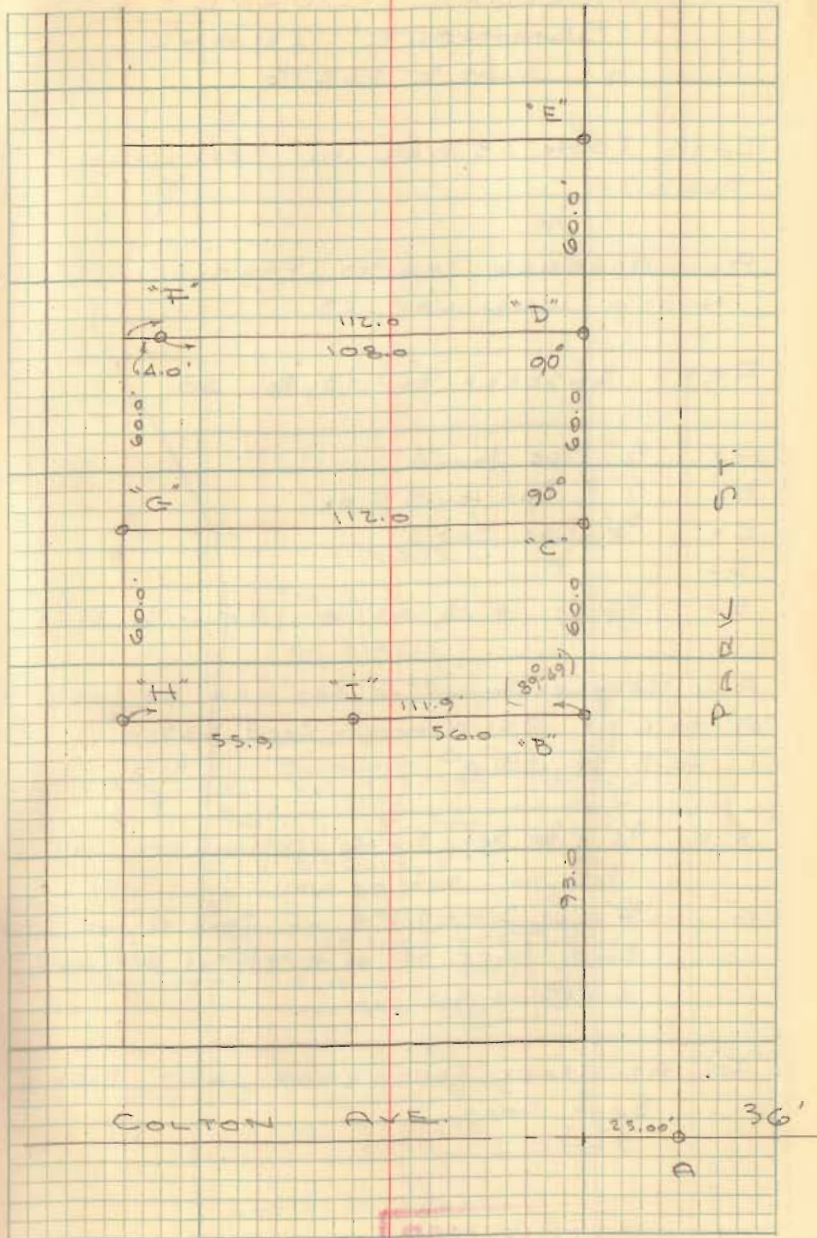 "E"
60.0'
"F"
112.0
"D"
108.0
90°
4.0'
60.0'
60.0
"G"
90°
112.0
"C"
60.0'
60.0
PARK ST.
"H"
"I"
111.9'
55.9
56.0
"B"
93.0
COLTON AVE.
25.00'
36'
A